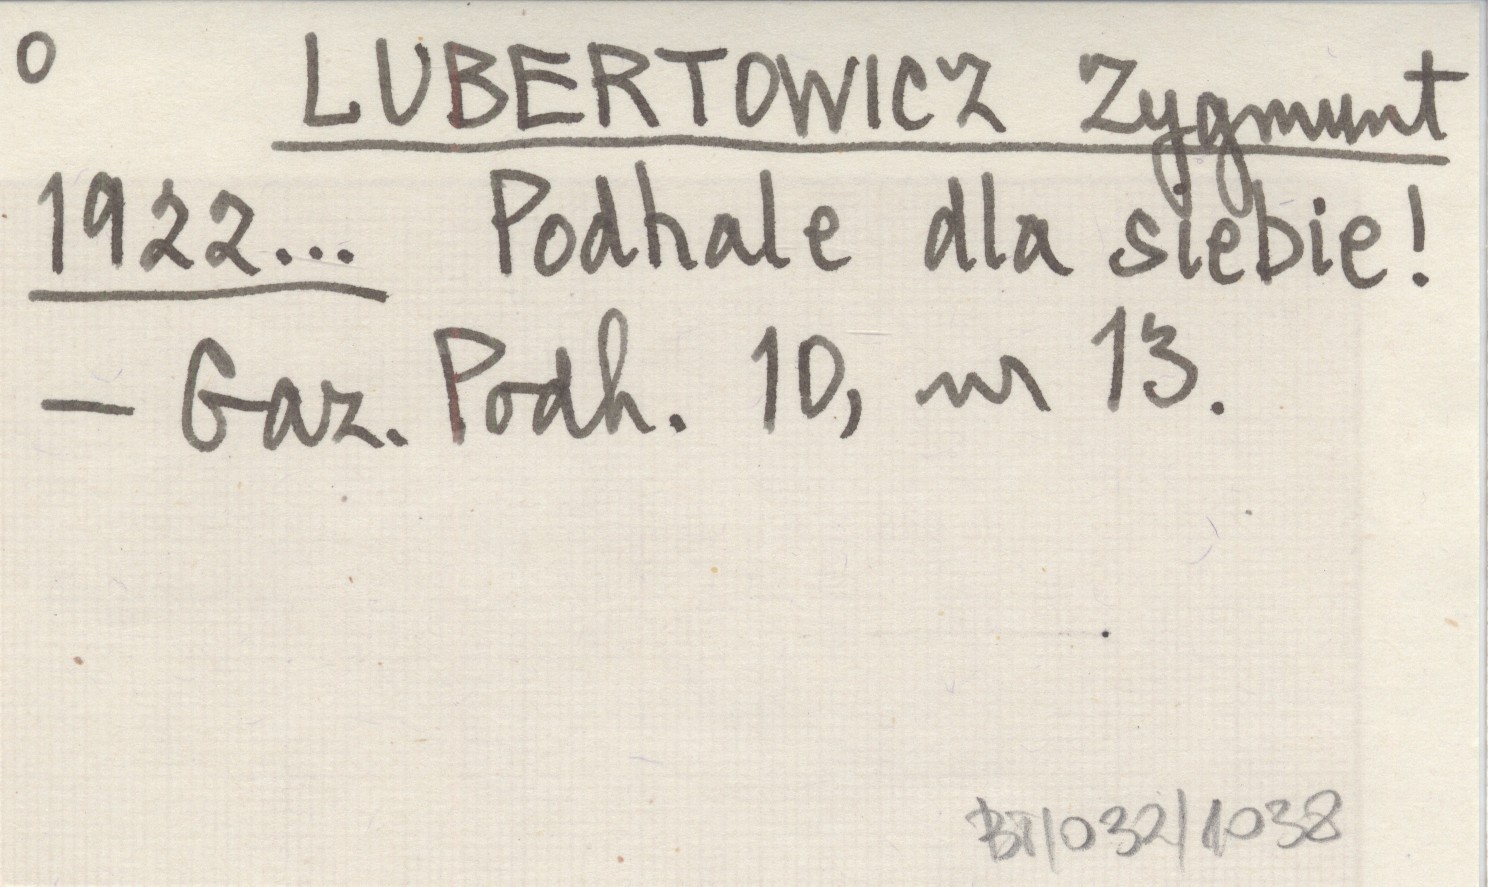 o LUBERTOWICZ Zygmunt
1922... Podhale dla siebie!
— Gaz. Podh. 10, nr 13.
BT/032/1038